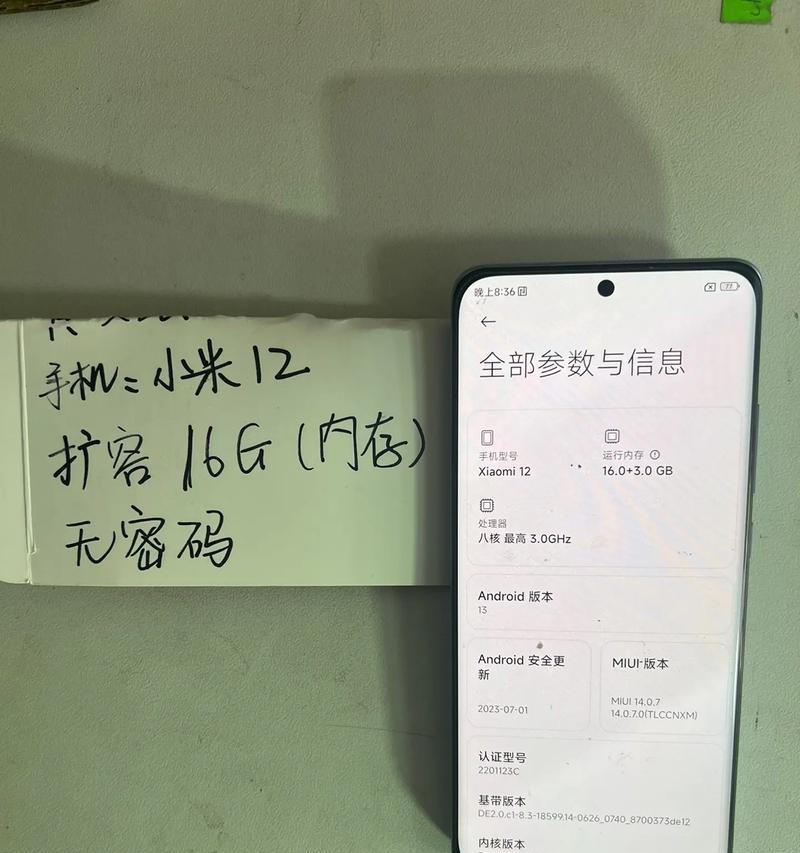 手机：小米12
扩容 16G（内存）
无密码
晚上8:36
77
全部参数与信息
手机型号
Xiaomi 12
运行内存
16.0+3.0 GB
处理器
八核 最高 3.0GHz
Android 版本
13
Android 安全更
新
2023-07-01
MIUI 版本
MIUI 14.0.7
14.0.7.0(TLCCNXM)
认证型号
2201123C
基带版本
DE2.0.c1-8.3-18599.14-0626_0740_8700373de12
内核版本